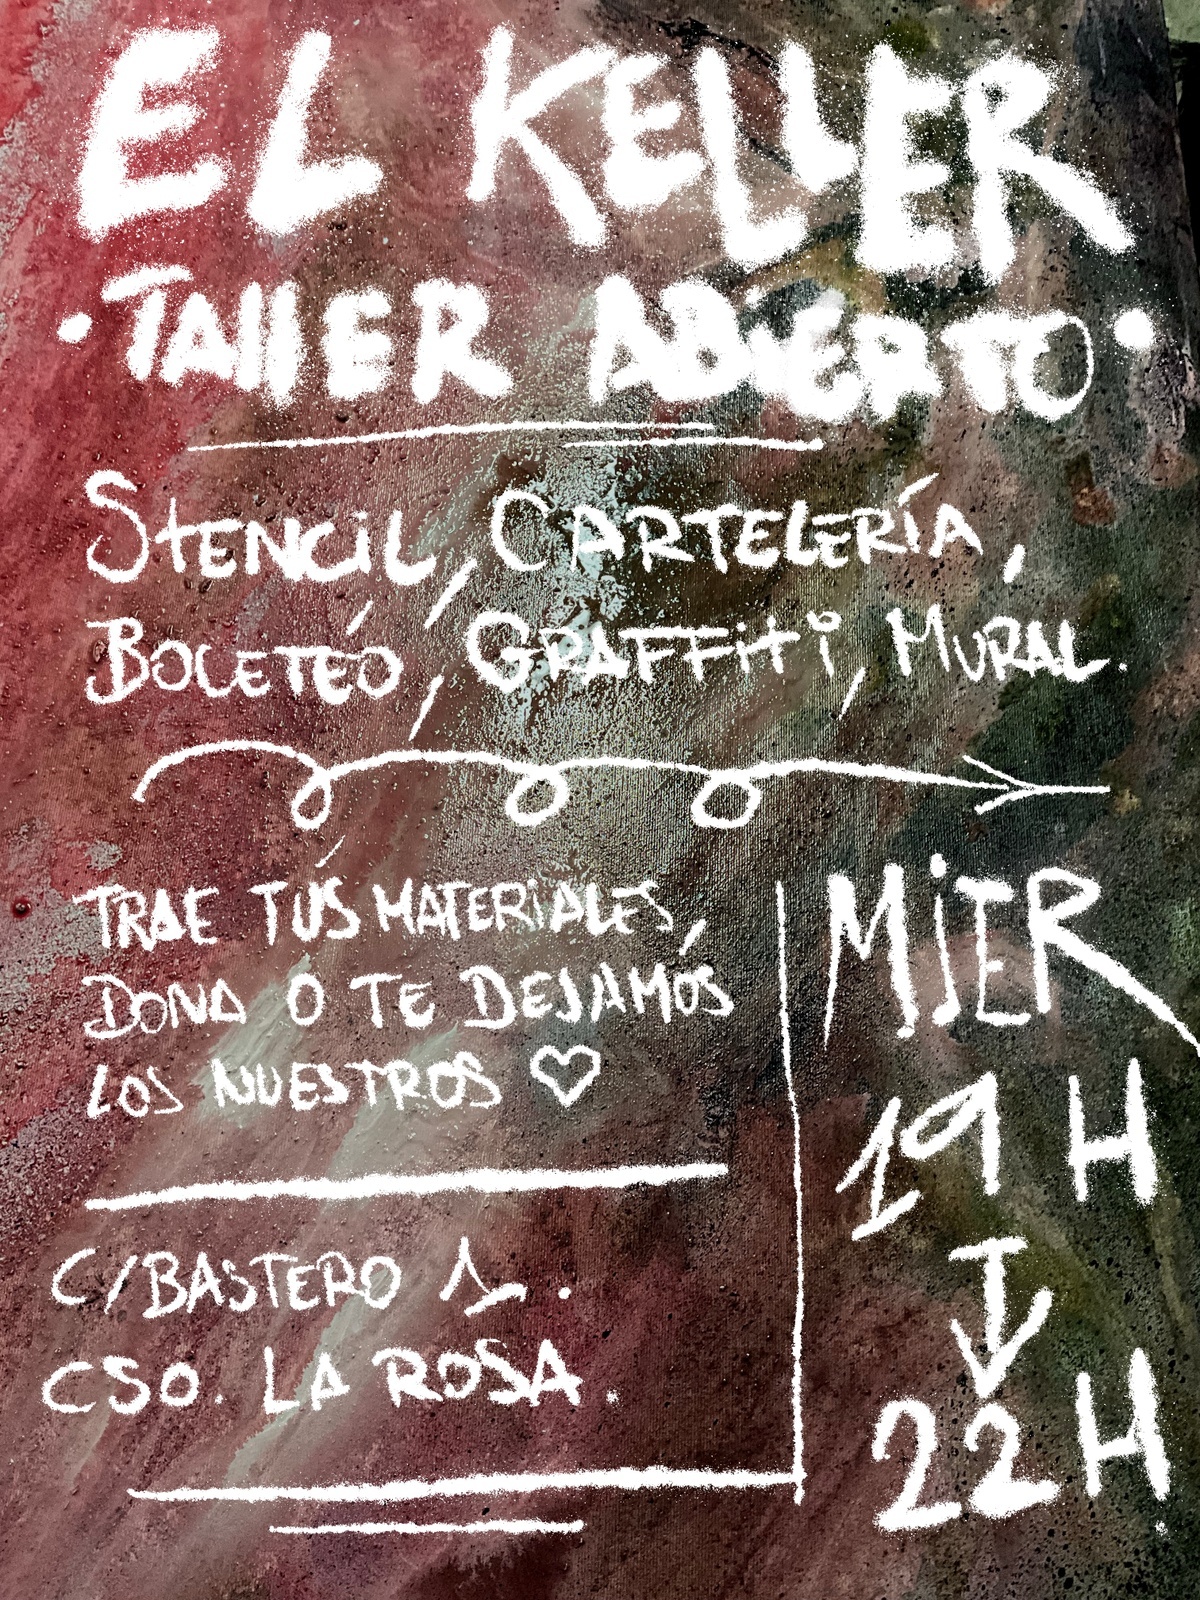 EL KELLER
· TAllER ABiERTO ·
STENCiL, CARTELERÍA,
BOCETÉO, GRAFFiTi, MURAL.
TRAE TÚS MATERiALES,
DONA O TE DEJAMÓS
LOS NUESTROS ♡
C/BASTERO 1.
CSO. LA ROSA.
MiER
19 H
22 H.